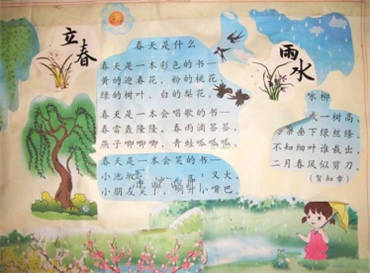 立春
春天是什么
春天是一本彩色的书—
黄的迎春花，粉的桃花，
绿的树叶，白的梨花。
春天是一本会唱歌的书—
春雷轰隆隆，春雨滴答答，
燕子唧唧唧，青蛙呱呱呱。
春天是一本会笑的书—
小池 又大
小朋友笑 小嘴巴
雨水
咏柳
一树高
垂下绿丝绦
不知细叶谁裁出，
二月春风似剪刀
（贺知章）